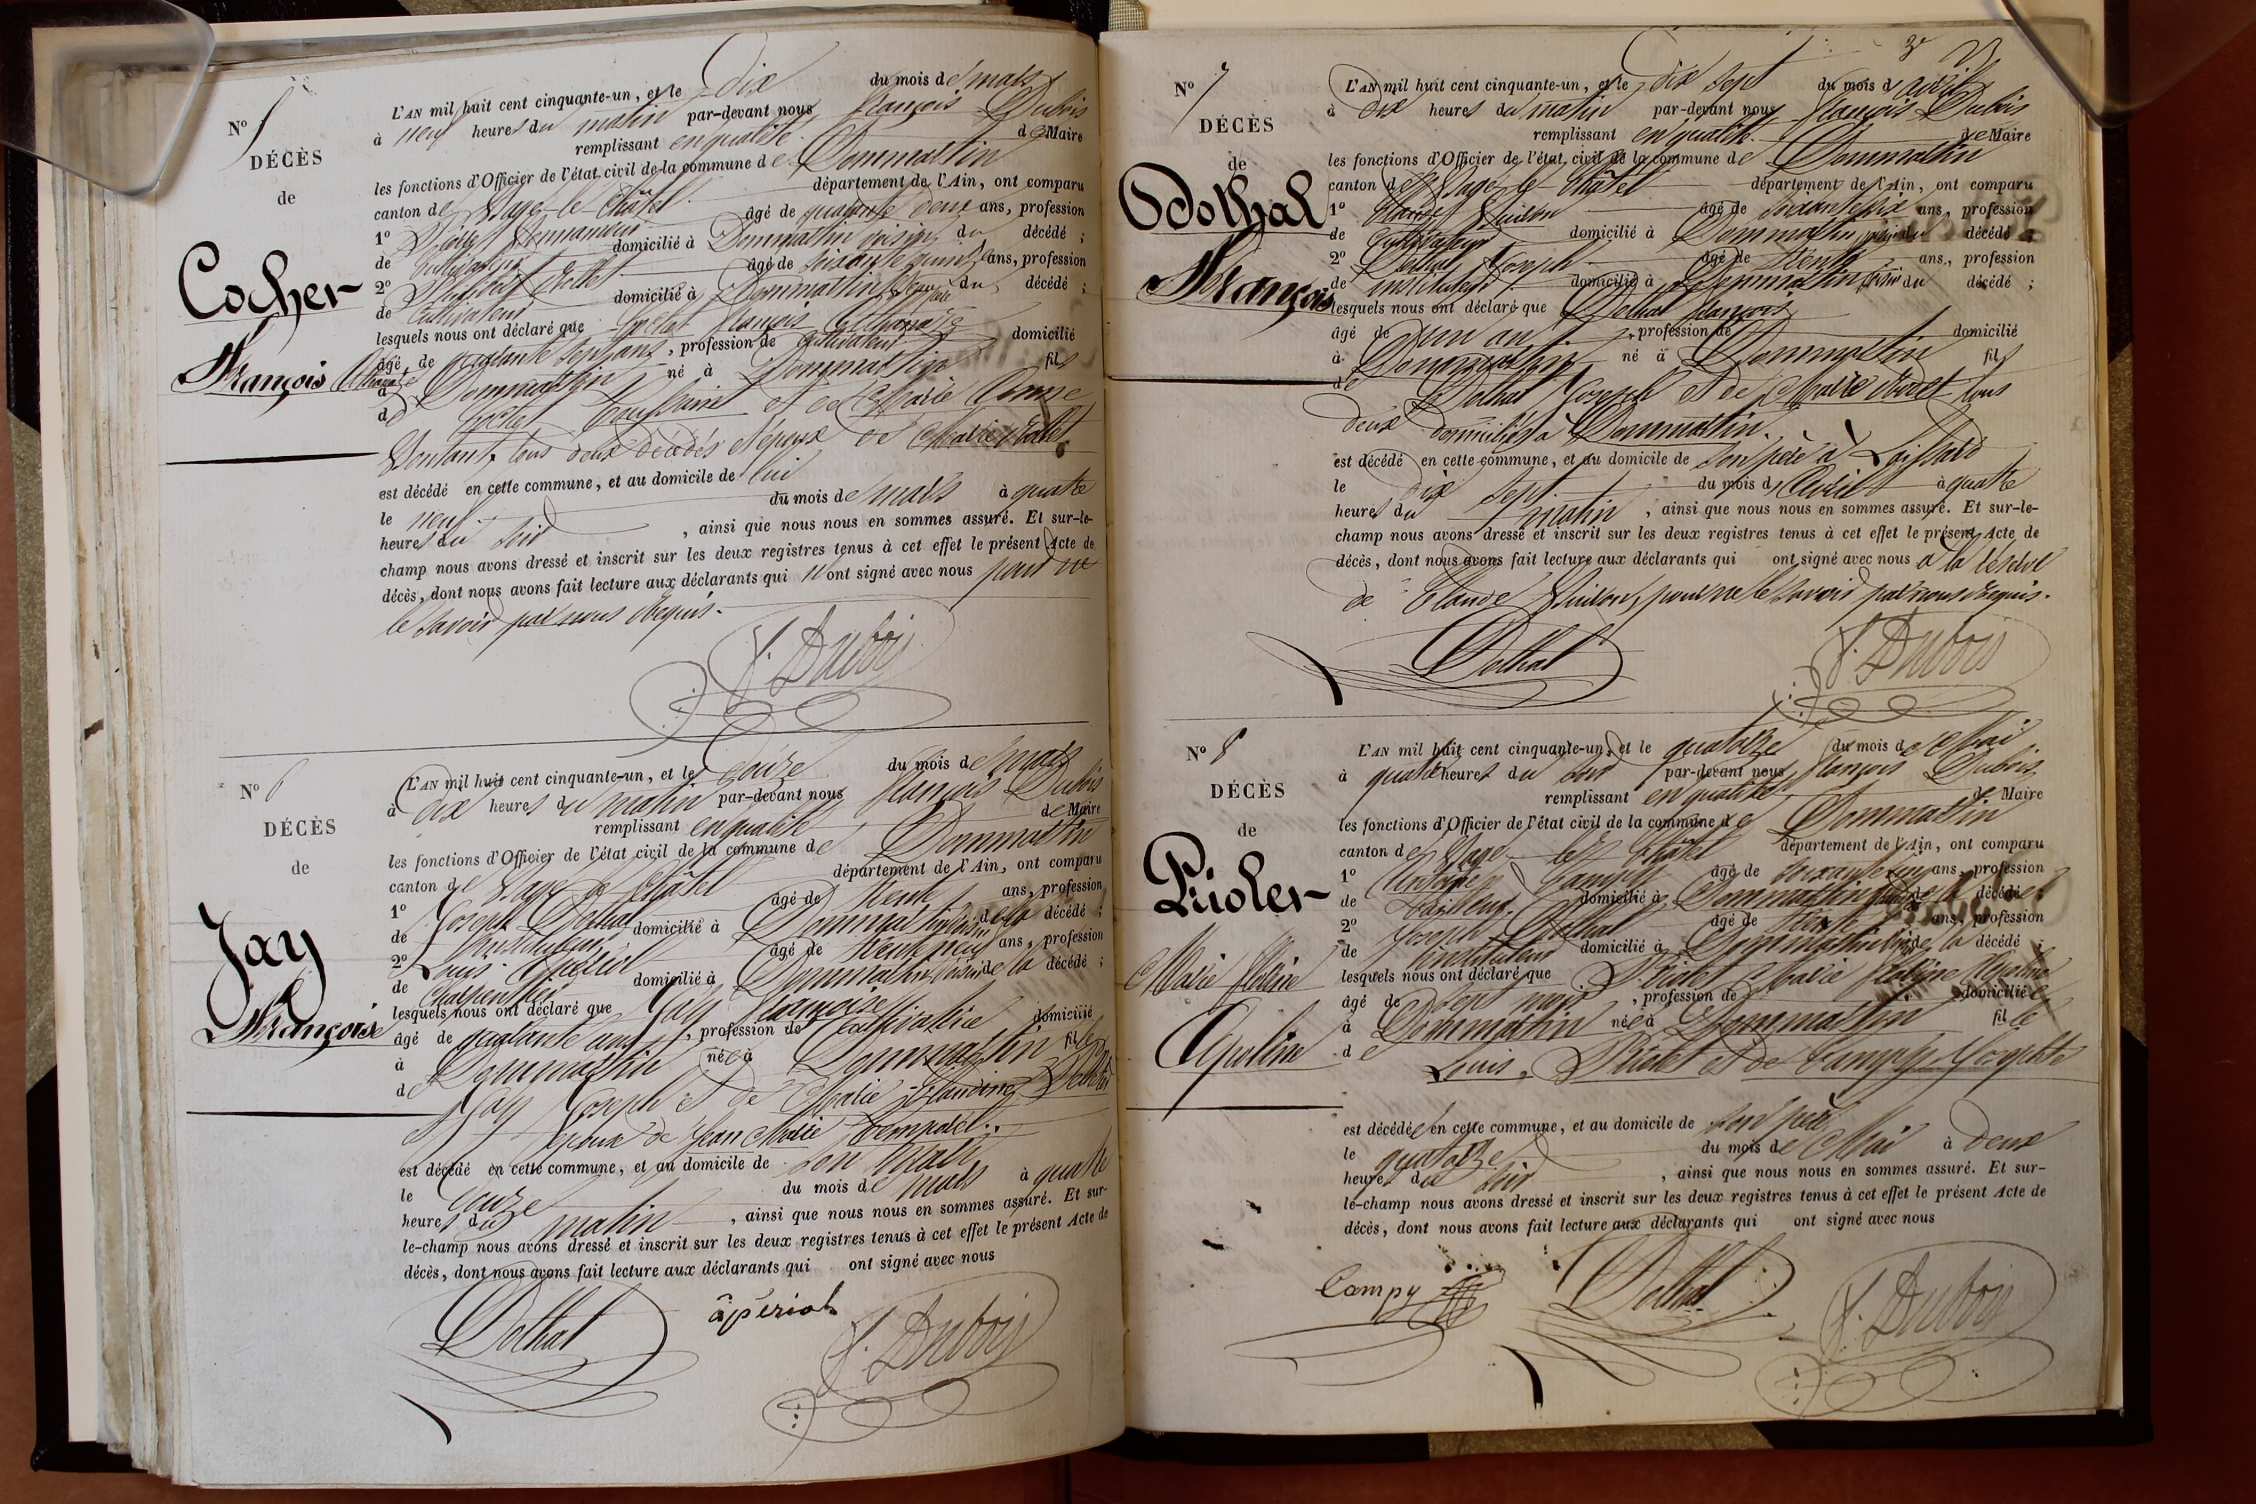 No 5
DÉCÈS
de
Cocher
François
L'AN mil huit cent cinquante-un, et le dix du mois de mars
à neuf heures du matin par-devant nous François Dubois
remplissant en qualité de Maire
les fonctions d'Officier de l'état civil de la commune de Dommartin
canton de Bagé-le-Châtel département de l'Ain, ont comparu
1º âgé de quarante deux ans, profession
de cultivateur domicilié à Dommartin voisin du décédé ;
2º âgé de soixante quinze ans, profession
de cultivateur domicilié à Dommartin du décédé ;
lesquels nous ont déclaré que Cochet François
âgé de quarante sept ans, profession de cultivateur domicilié
à Dommartin né à Dommartin fils
de Cochet et de Marie Anne
tous deux décédés et époux de Marie
est décédé en cette commune, et au domicile de lui
le neuf du mois de mars à quatre
heures du soir, ainsi que nous nous en sommes assuré. Et sur-le-
champ nous avons dressé et inscrit sur les deux registres tenus à cet effet le présent Acte de
décès, dont nous avons fait lecture aux déclarants qui n'ont signé avec nous pour ne
le savoir par nous Requis.
F. Dubois
No 6
DÉCÈS
de
Jay
Françoise
L'AN mil huit cent cinquante-un, et le douze du mois de mars
à dix heures du matin par-devant nous François Dubois
remplissant en qualité de Maire
les fonctions d'Officier de l'état civil de la commune de Dommartin
canton de Bagé-le-Châtel département de l'Ain, ont comparu
1º Joseph Dothal âgé de trente ans, profession
de instituteur domicilié à Dommartin voisin de la décédé ;
2º Louis âgé de trente neuf ans, profession
de charpentier domicilié à Dommartin voisin de la décédé ;
lesquels nous ont déclaré que Jay Françoise
âgé de quarante ans, profession de cultivatrice domicilié
à Dommartin née à Dommartin fille
de Jay Joseph et de Marie Claudine
épouse de Jean Marie
est décédé en cette commune, et au domicile de son
le douze du mois de mars à quatre
heures du matin, ainsi que nous nous en sommes assuré. Et sur-
le-champ nous avons dressé et inscrit sur les deux registres tenus à cet effet le présent Acte de
décès, dont nous avons fait lecture aux déclarants qui ont signé avec nous
Dothal
F. Dubois
No 7
DÉCÈS
de
Dothal
François
L'AN mil huit cent cinquante-un, et le dix sept du mois d'avril
à dix heures du matin par-devant nous François Dubois
remplissant en qualité de Maire
les fonctions d'Officier de l'état civil de la commune de Dommartin
canton de Bagé-le-Châtel département de l'Ain, ont comparu
1º Claude Guillon âgé de soixante dix ans, profession
de cultivateur domicilié à Dommartin voisin du décédé
2º Dothal Joseph âgé de trente ans, profession
de instituteur domicilié à Dommartin du décédé ;
lesquels nous ont déclaré que Dothal François
âgé de un an, profession de domicilié
à Dommartin né à Dommartin fils
de Dothal Joseph et de Marie tous
deux domiciliés à Dommartin.
est décédé en cette commune, et au domicile de son père à Loissard
le dix sept du mois d'Avril à quatre
heures du matin, ainsi que nous nous en sommes assuré. Et sur-le-
champ nous avons dressé et inscrit sur les deux registres tenus à cet effet le présent Acte de
décès, dont nous avons fait lecture aux déclarants qui ont signé avec nous à la réserve
de Claude Guillon, pour ne le savoir par nous Requis.
Dothal
F. Dubois
No 8
DÉCÈS
de
Priolet
Marie
L'AN mil huit cent cinquante-un, et le quatorze du mois de Mai
à quatre heures du soir par-devant nous François Dubois
remplissant en qualité de Maire
les fonctions d'Officier de l'état civil de la commune de Dommartin
canton de Bagé-le-Châtel département de l'Ain, ont comparu
1º Antoine Campy âgé de soixante un ans, profession
de tailleur domicilié à Dommartin de la décédée
2º Joseph Dothal âgé de trente ans, profession
de instituteur domicilié à Dommartin voisin de la décédé ;
lesquels nous ont déclaré que Priolet Marie
âgé de sept mois, profession de domiciliée
à Dommartin née à Dommartin fille
de Louis Priolet et de Campy Josephte
est décédée en cette commune, et au domicile de son père
le quatorze du mois de Mai à deux
heures du soir, ainsi que nous nous en sommes assuré. Et sur-
le-champ nous avons dressé et inscrit sur les deux registres tenus à cet effet le présent Acte de
décès, dont nous avons fait lecture aux déclarants qui ont signé avec nous
Campy
Dothal
F. Dubois